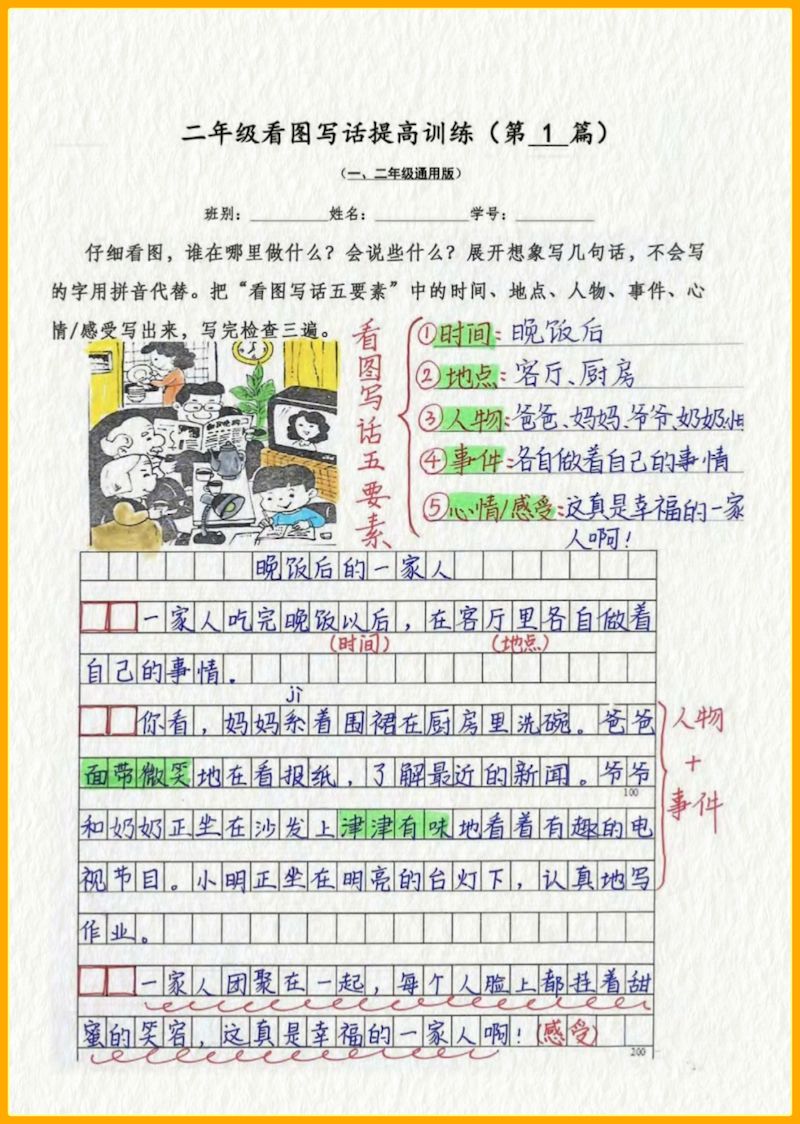 二年级看图写话提高训练（第 1 篇）
（一、二年级通用版）
班别：________姓名：________学号：________
仔细看图，谁在哪里做什么？会说些什么？展开想象写几句话，不会写
的字用拼音代替。把“看图写话五要素”中的时间、地点、人物、事件、心
情/感受写出来，写完检查三遍。
看图写话五要素
①时间：晚饭后
②地点：客厅、厨房
③人物：爸爸、妈妈、爷爷、奶奶、
④事件：各自做着自己的事情
⑤心情/感受：这真是幸福的一家
人啊！
晚饭后的一家人
一家人吃完晚饭以后，在客厅里各自做着
（时间） （地点）
自己的事情.
jì
你看，妈妈系着围裙在厨房里洗碗。爸爸
面带微笑地在看报纸，了解最近的新闻。爷爷
100
和奶奶正坐在沙发上津津有味地看着有趣的电
视节目。小明正坐在明亮的台灯下，认真地写
作业。
人物
+
事件
一家人团聚在一起，每个人脸上都挂着甜
蜜的笑容，这真是幸福的一家人啊！（感受）
200